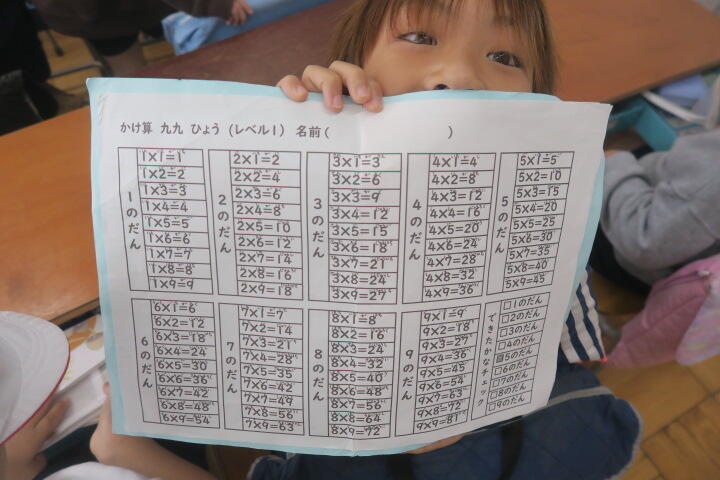 かけ算 九九 ひょう (レベル1) 名前( )
1のだん
1×1=1
1×2=2
1×3=3
1×4=4
1×5=5
1×6=6
1×7=7
1×8=8
1×9=9
2のだん
2×1=2
2×2=4
2×3=6
2×4=8
2×5=10
2×6=12
2×7=14
2×8=16
2×9=18
3のだん
3×1=3
3×2=6
3×3=9
3×4=12
3×5=15
3×6=18
3×7=21
3×8=24
3×9=27
4のだん
4×1=4
4×2=8
4×3=12
4×4=16
4×5=20
4×6=24
4×7=28
4×8=32
4×9=36
5のだん
5×1=5
5×2=10
5×3=15
5×4=20
5×5=25
5×6=30
5×7=35
5×8=40
5×9=45
6のだん
6×1=6
6×2=12
6×3=18
6×4=24
6×5=30
6×6=36
6×7=42
6×8=48
6×9=54
7のだん
7×1=7
7×2=14
7×3=21
7×4=28
7×5=35
7×6=42
7×7=49
7×8=56
7×9=63
8のだん
8×1=8
8×2=16
8×3=24
8×4=32
8×5=40
8×6=48
8×7=56
8×8=64
8×9=72
9のだん
9×1=9
9×2=18
9×3=27
9×4=36
9×5=45
9×6=54
9×7=63
9×8=72
9×9=81
できたかなチェック
□1のだん
□2のだん
□3のだん
□4のだん
□5のだん
□6のだん
□7のだん
□8のだん
□9のだん